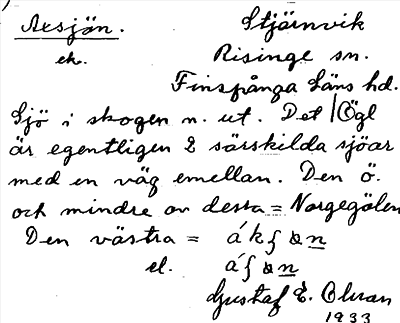 Axsjön. Stjärnvik
ek. Risinge sn.
Finspånga Läns hd.
Sjö i skogen n. ut. Det | Ögl
är egentligen 2 särskilda sjöar
med en väg emellan. Den ö.
och mindre av dessa = Norgegölen
Den västra =
el.
Gustaf E. Olson
1933